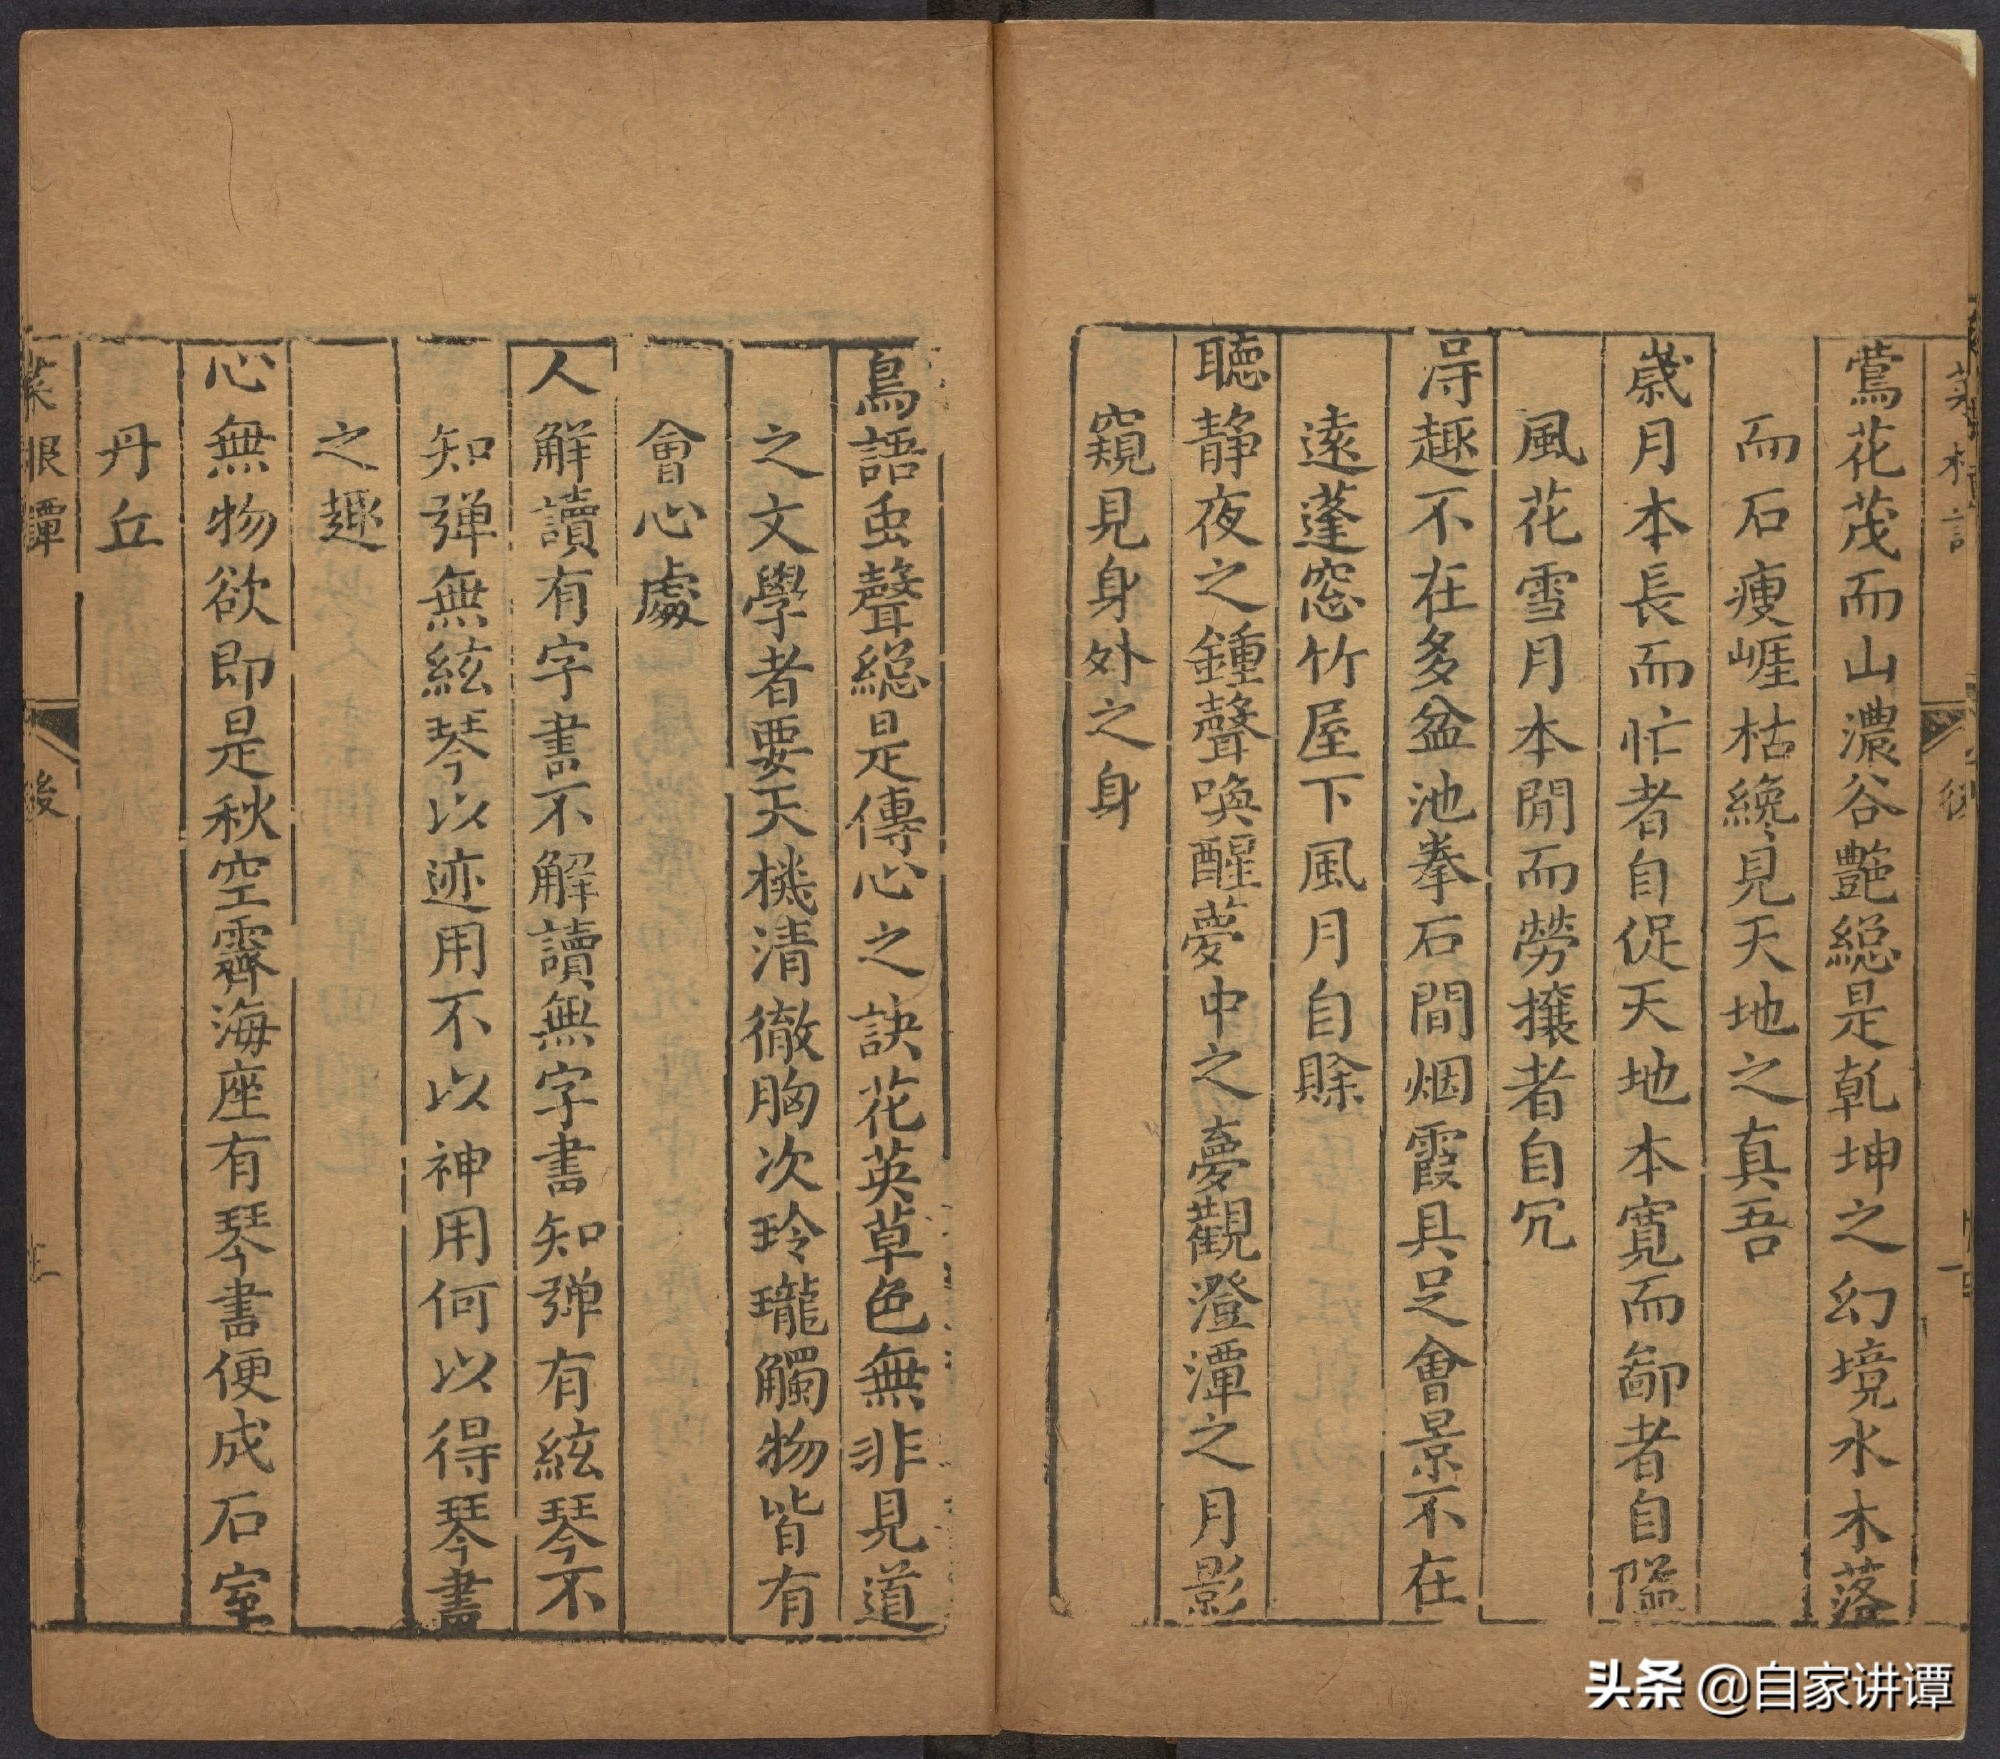 鶯花茂而山濃谷艷総是乾坤之幻境水木落
而石瘦崕枯纔見天地之真吾
歲月本長而忙者自促天地本寬而鄙者自隘
風花雪月本閒而勞攘者自冗
得趣不在多盆池拳石間烟霞具足會景不在
遠蓬窓竹屋下風月自賖
聽静夜之鍾聲喚醒夢中之夢觀澄潭之月影
窺見身外之身
鳥語虫聲総是傳心之訣花英草色無非見道
之文學者要天機清徹胸次玲瓏觸物皆有
會心處
人解讀有字書不解讀無字書知弹有絃琴不
知弹無絃琴以迹用不以神用何以得琴書
之趣
心無物欲即是秋空霽海座有琴書便成石室
丹丘
菜根譚
後
头条 @自家讲谭